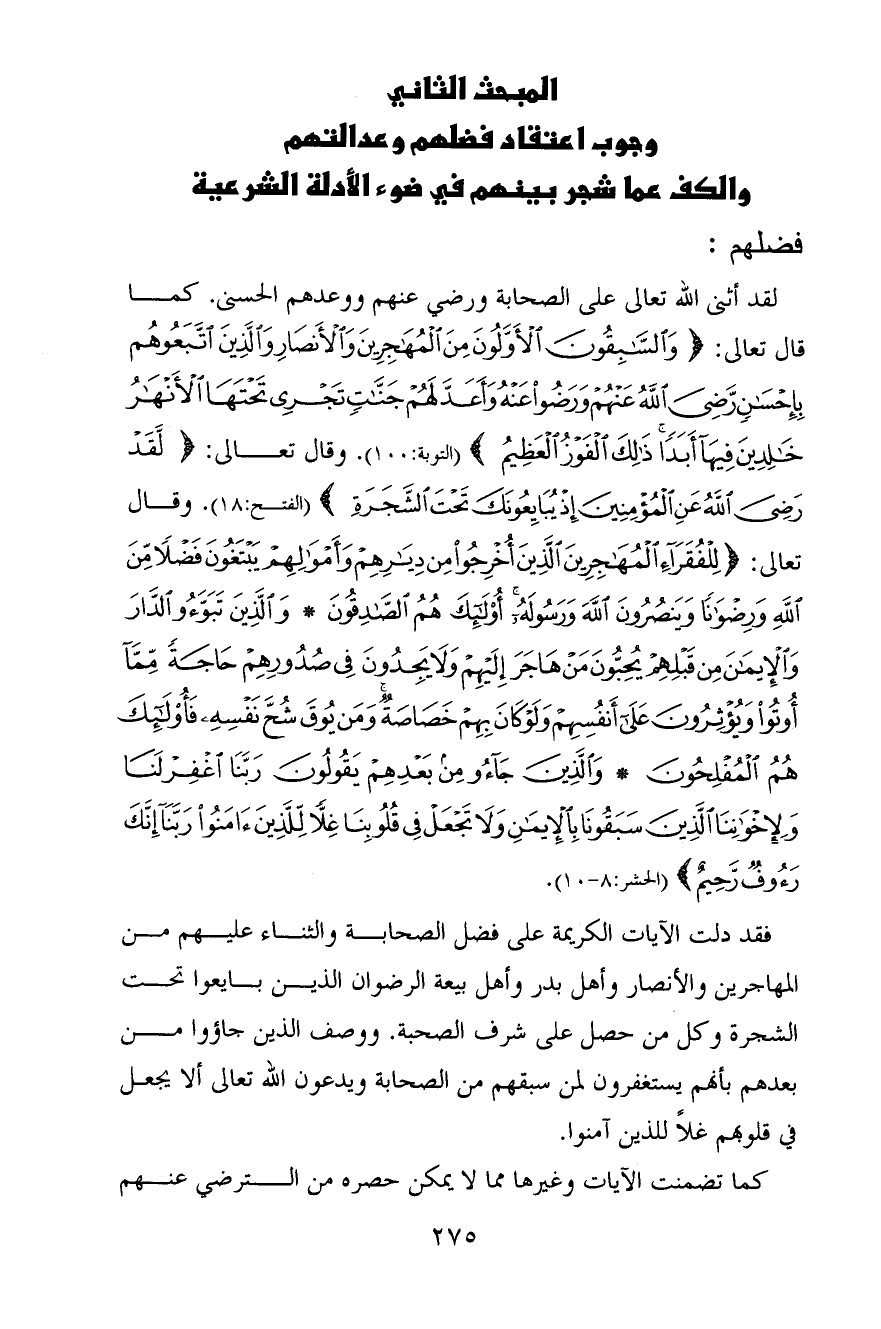 المبحث الثاني
وجوب اعتقاد فضلهم وعدالتهم
والكف عما شجر بينهم في ضوء الأدلة الشرعية
فضلهم :
لقد أثنى الله تعالى على الصحابة ورضي عنهم ووعدهم الحسنى. كمـــا
قال تعالى: ﴿ وَٱلسَّـٰبِقُونَ ٱلْأَوَّلُونَ مِنَ ٱلْمُهَـٰجِرِينَ وَٱلْأَنصَارِ وَٱلَّذِينَ ٱتَّبَعُوهُم
بِإِحْسَـٰنٍ رَّضِىَ ٱللَّهُ عَنْهُمْ وَرَضُوا۟ عَنْهُ وَأَعَدَّ لَهُمْ جَنَّـٰتٍ تَجْرِى تَحْتَهَا ٱلْأَنْهَـٰرُ
خَـٰلِدِينَ فِيهَآ أَبَدًا ۚ ذَٰلِكَ ٱلْفَوْزُ ٱلْعَظِيمُ ﴾ (التوبة:١٠٠). وقال تعـــالى: ﴿ لَّقَدْ
رَضِىَ ٱللَّهُ عَنِ ٱلْمُؤْمِنِينَ إِذْ يُبَايِعُونَكَ تَحْتَ ٱلشَّجَرَةِ ﴾ (الفتـح:١٨). وقـال
تعالى: ﴿ لِلْفُقَرَآءِ ٱلْمُهَـٰجِرِينَ ٱلَّذِينَ أُخْرِجُوا۟ مِن دِيَـٰرِهِمْ وَأَمْوَٰلِهِمْ يَبْتَغُونَ فَضْلًا مِّنَ
ٱللَّهِ وَرِضْوَٰنًا وَيَنصُرُونَ ٱللَّهَ وَرَسُولَهُۥٓ ۚ أُو۟لَـٰٓئِكَ هُمُ ٱلصَّـٰدِقُونَ * وَٱلَّذِينَ تَبَوَّءُو ٱلدَّارَ
وَٱلْإِيمَـٰنَ مِن قَبْلِهِمْ يُحِبُّونَ مَنْ هَاجَرَ إِلَيْهِمْ وَلَا يَجِدُونَ فِى صُدُورِهِمْ حَاجَةً مِّمَّآ
أُوتُوا۟ وَيُؤْثِرُونَ عَلَىٰٓ أَنفُسِهِمْ وَلَوْ كَانَ بِهِمْ خَصَاصَةٌ ۚ وَمَن يُوقَ شُحَّ نَفْسِهِۦ فَأُو۟لَـٰٓئِكَ
هُمُ ٱلْمُفْلِحُونَ * وَٱلَّذِينَ جَآءُو مِنۢ بَعْدِهِمْ يَقُولُونَ رَبَّنَا ٱغْفِرْ لَنَا
وَلِإِخْوَٰنِنَا ٱلَّذِينَ سَبَقُونَا بِٱلْإِيمَـٰنِ وَلَا تَجْعَلْ فِى قُلُوبِنَا غِلًّا لِّلَّذِينَ ءَامَنُوا۟ رَبَّنَآ إِنَّكَ
رَءُوفٌ رَّحِيمٌ ﴾ (الحشر:٨-١٠).
فقد دلت الآيات الكريمة على فضل الصحابـــة والثنـــاء عليـــهم مـــن
المهاجرين والأنصار وأهل بدر وأهل بيعة الرضوان الذيـــن بـــايعوا تحـــت
الشجرة وكل من حصل على شرف الصحبة. ووصف الذين جاؤوا مـــن
بعدهم بأنهم يستغفرون لمن سبقهم من الصحابة ويدعون الله تعالى ألا يجعـل
في قلوبهم غلاً للذين آمنوا.
كما تضمنت الآيات وغيرها مما لا يمكن حصره من الـــترضي عنـــهم
٢٧٥